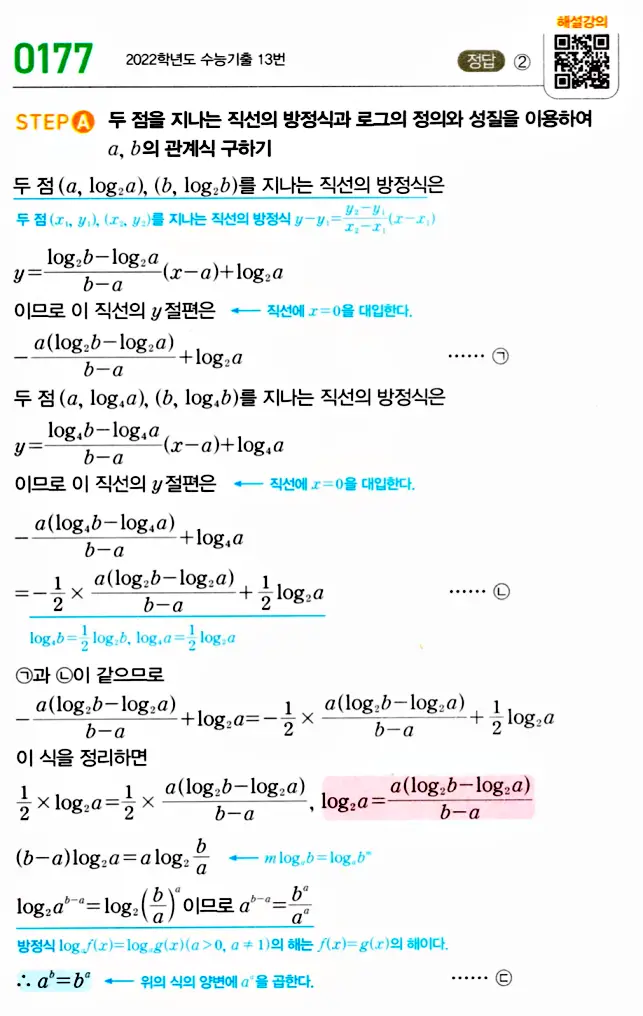 해설강의
0177 2022학년도 수능기출 13번 정답 ②
STEP A 두 점을 지나는 직선의 방정식과 로그의 정의와 성질을 이용하여
a, b의 관계식 구하기
두 점 (a, log₂a), (b, log₂b)를 지나는 직선의 방정식은
두 점 (x₁, y₁), (x₂, y₂)를 지나는 직선의 방정식 y−y₁=\frac{y₂−y₁}{x₂−x₁}(x−x₁)
y=\frac{log₂b−log₂a}{b−a}(x−a)+log₂a
이므로 이 직선의 y절편은 ← 직선에 x=0을 대입한다.
−\frac{a(log₂b−log₂a)}{b−a}+log₂a …… ㉠
두 점 (a, log₄a), (b, log₄b)를 지나는 직선의 방정식은
y=\frac{log₄b−log₄a}{b−a}(x−a)+log₄a
이므로 이 직선의 y절편은 ← 직선에 x=0을 대입한다.
−\frac{a(log₄b−log₄a)}{b−a}+log₄a
=−\frac{1}{2}×\frac{a(log₂b−log₂a)}{b−a}+\frac{1}{2}log₂a …… ㉡
log₄b=\frac{1}{2}log₂b, log₄a=\frac{1}{2}log₂a
㉠과 ㉡이 같으므로
−\frac{a(log₂b−log₂a)}{b−a}+log₂a=−\frac{1}{2}×\frac{a(log₂b−log₂a)}{b−a}+\frac{1}{2}log₂a
이 식을 정리하면
\frac{1}{2}×log₂a=\frac{1}{2}×\frac{a(log₂b−log₂a)}{b−a}, log₂a=\frac{a(log₂b−log₂a)}{b−a}
(b−a)log₂a=a log₂\frac{b}{a} ← m logₐb=logₐbᵐ
log₂a^{b−a}=log₂(\frac{b}{a})^a이므로 a^{b−a}=\frac{b^a}{a^a}
방정식 logₐf(x)=logₐg(x)(a>0, a≠1)의 해는 f(x)=g(x)의 해이다.
∴ a^b=b^a ← 위의 식의 양변에 a^a을 곱한다. …… ㉢